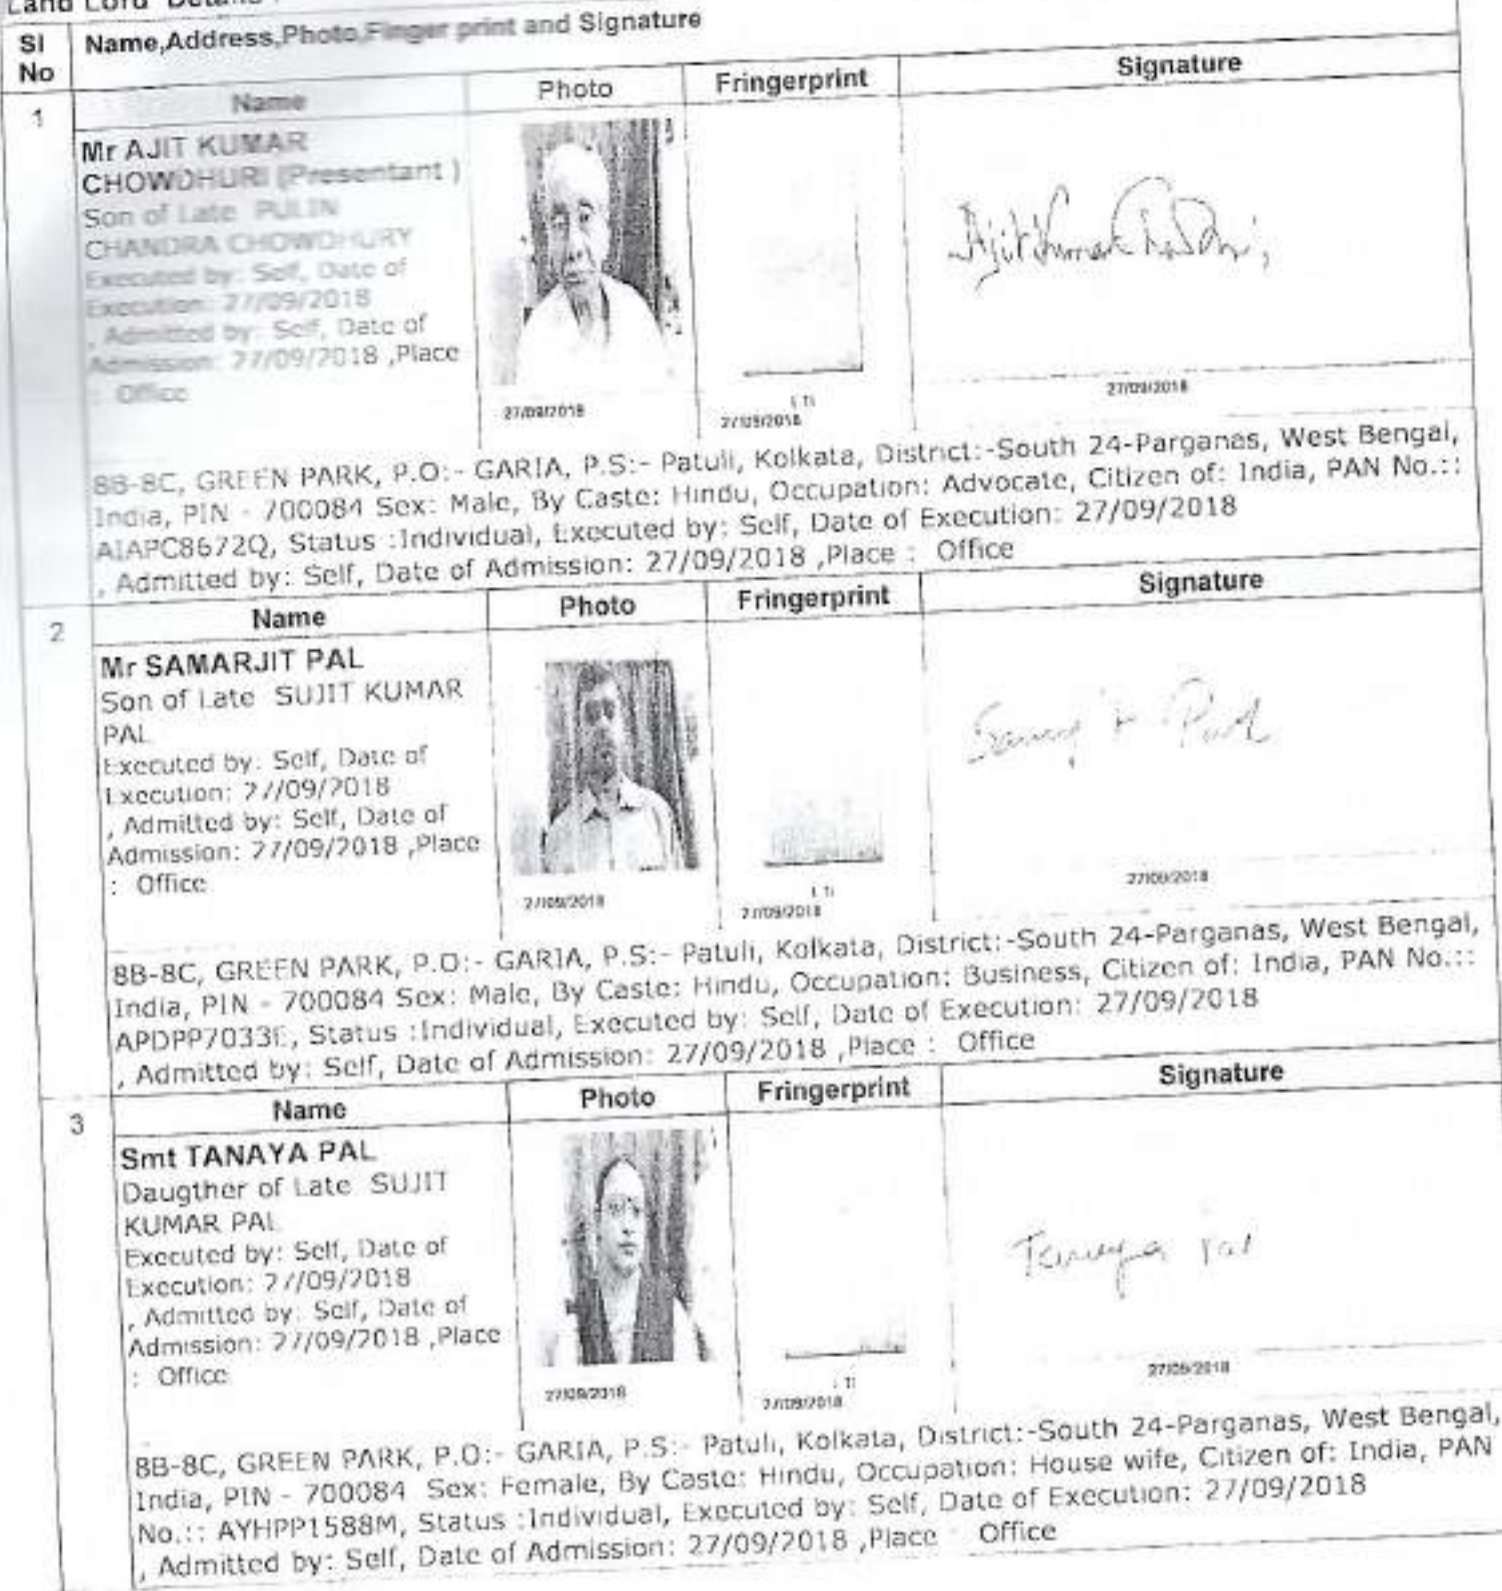 Land Lord Details :
SI No
Name,Address,Photo,Finger print and Signature
1
Name
Photo
Fringerprint
Signature
Mr AJIT KUMAR
CHOWDHURI (Presentant )
Son of Late PULIN
CHANDRA CHOWDHURY
Executed by: Self, Date of
Execution: 27/09/2018
, Admitted by: Self, Date of
Admission: 27/09/2018 ,Place
: Office
Ajit Kumar
27/09/2018
27/09/2018
27/09/2018
8B-8C, GREEN PARK, P.O:- GARIA, P.S:- Patuli, Kolkata, District:-South 24-Parganas, West Bengal,
India, PIN - 700084 Sex: Male, By Caste: Hindu, Occupation: Advocate, Citizen of: India, PAN No.::
AIAPC8672Q, Status :Individual, Executed by: Self, Date of Execution: 27/09/2018
, Admitted by: Self, Date of Admission: 27/09/2018 ,Place : Office
2
Name
Photo
Fringerprint
Signature
Mr SAMARJIT PAL
Son of Late SUJIT KUMAR
PAL
Executed by: Self, Date of
Execution: 27/09/2018
, Admitted by: Self, Date of
Admission: 27/09/2018 ,Place
: Office
Pal
27/09/2018
27/09/2018
27/09/2018
8B-8C, GREEN PARK, P.O:- GARIA, P.S:- Patuli, Kolkata, District:-South 24-Parganas, West Bengal,
India, PIN - 700084 Sex: Male, By Caste: Hindu, Occupation: Business, Citizen of: India, PAN No.::
APDPP7033E, Status :Individual, Executed by: Self, Date of Execution: 27/09/2018
, Admitted by: Self, Date of Admission: 27/09/2018 ,Place : Office
3
Name
Photo
Fringerprint
Signature
Smt TANAYA PAL
Daugther of Late SUJIT
KUMAR PAL
Executed by: Self, Date of
Execution: 27/09/2018
, Admitted by: Self, Date of
Admission: 27/09/2018 ,Place
: Office
Tanaya Pal
27/09/2018
27/09/2018
27/09/2018
8B-8C, GREEN PARK, P.O:- GARIA, P.S:- Patuli, Kolkata, District:-South 24-Parganas, West Bengal,
India, PIN - 700084 Sex: Female, By Caste: Hindu, Occupation: House wife, Citizen of: India, PAN
No.:: AYHPP1588M, Status :Individual, Executed by: Self, Date of Execution: 27/09/2018
, Admitted by: Self, Date of Admission: 27/09/2018 ,Place Office